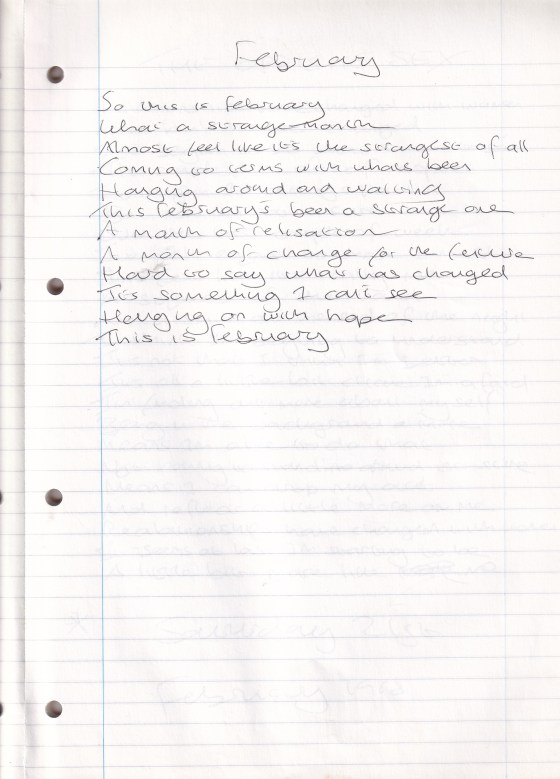 February
So this is february
What a strange month
Almost feel like it's the strangest of all
Coming to terms with whats been
Hanging around and waiting
This February's been a strange one
A month of relisation
A month of change for the future
Hard to say what has changed
It's something I can't see
Hanging on with hope
This is February